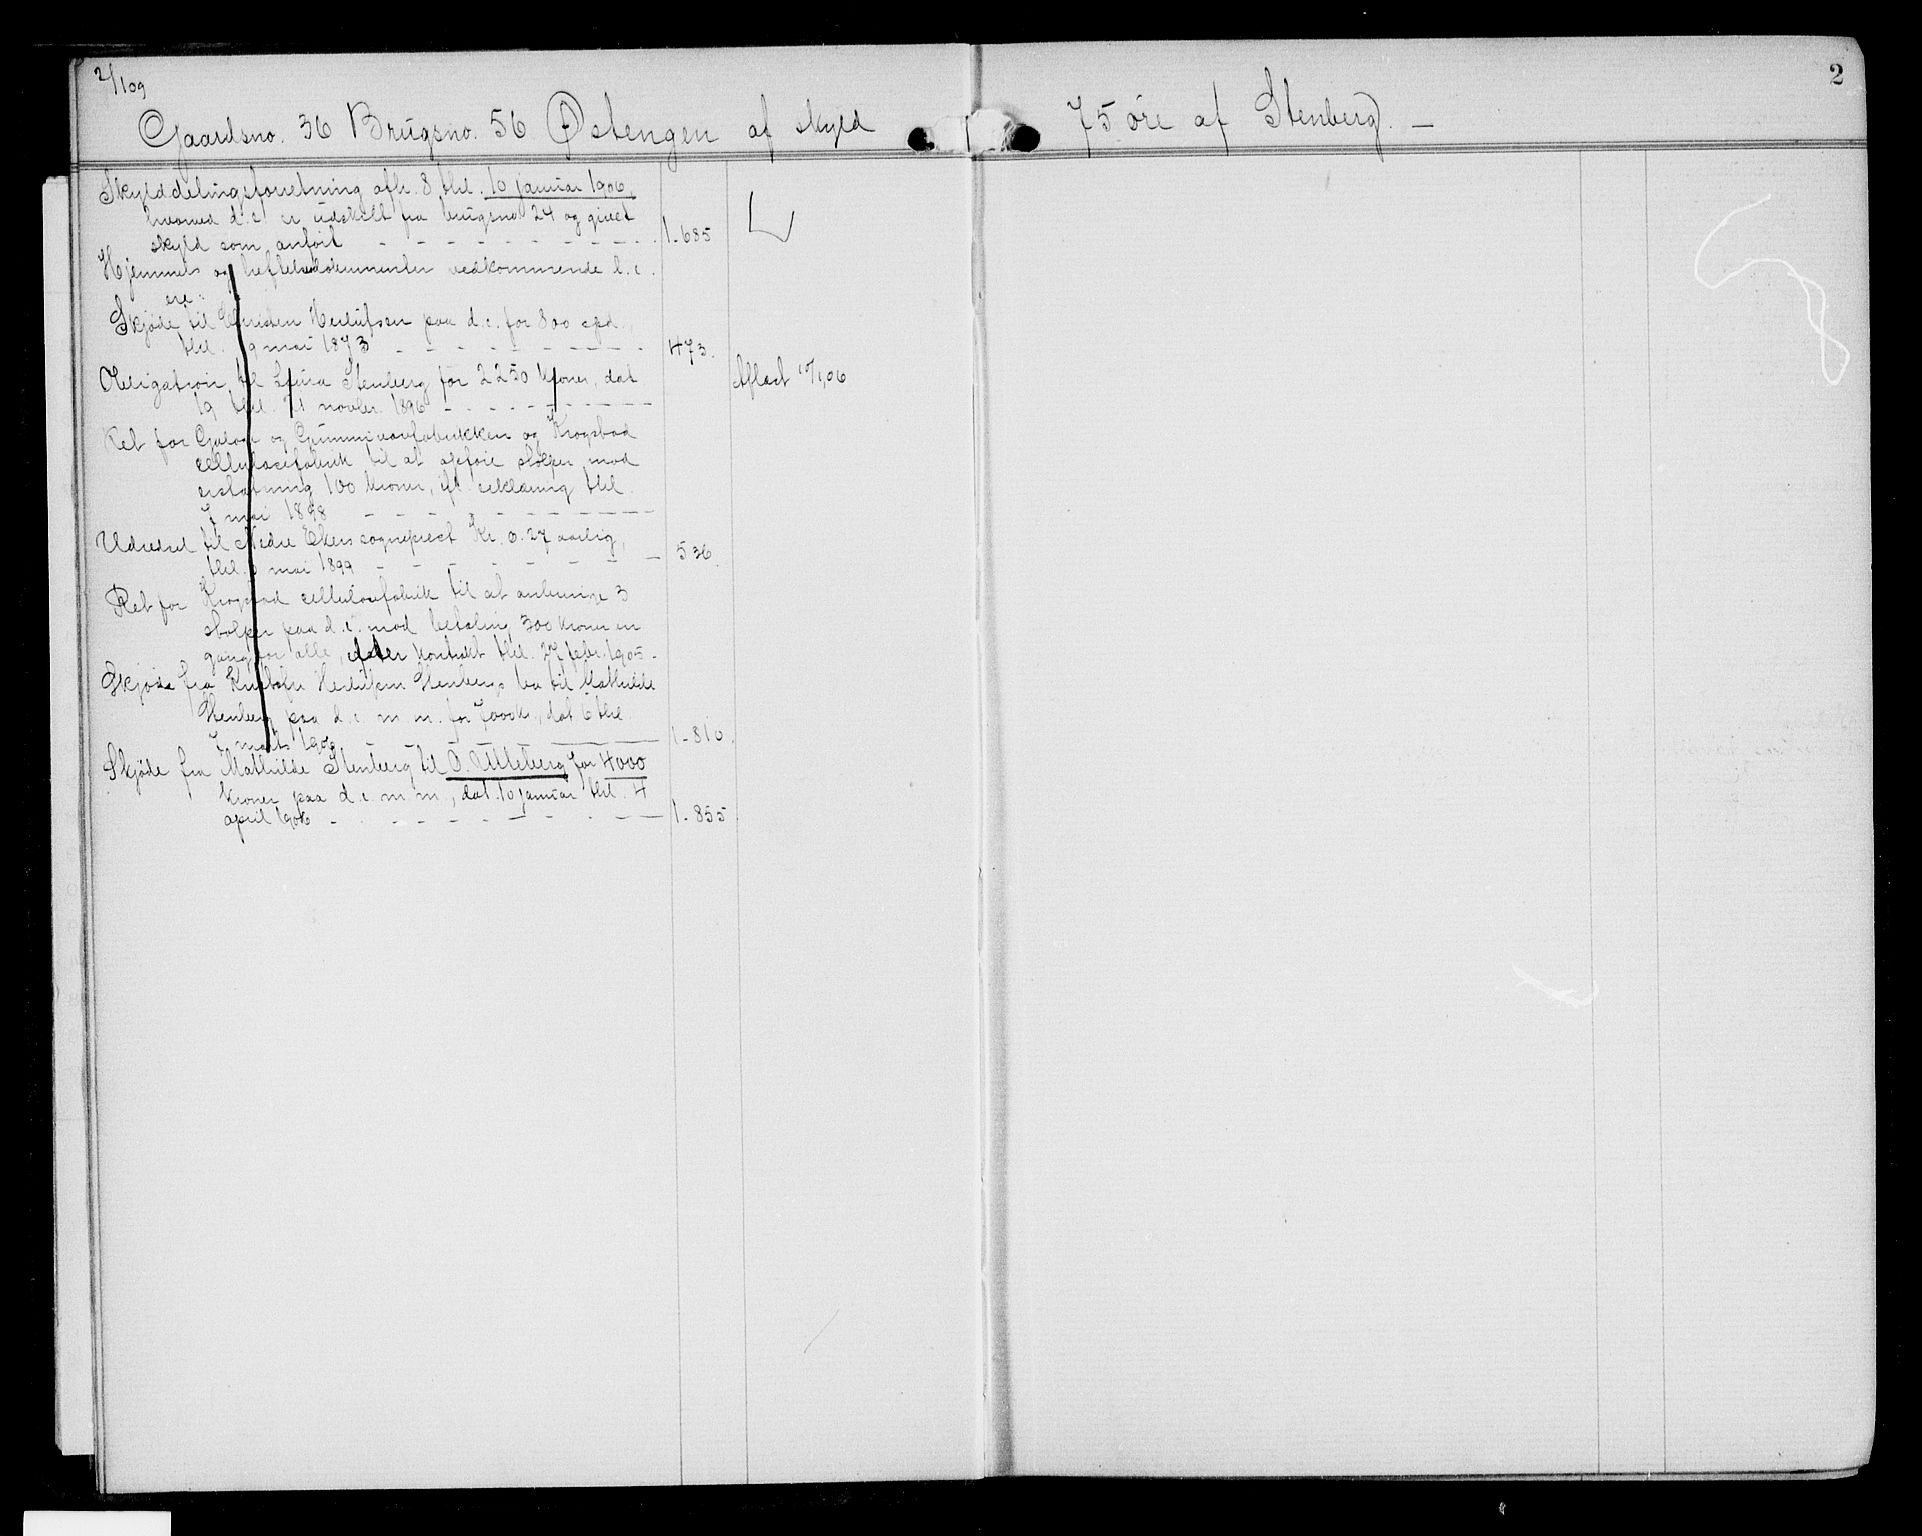 2/109
2
Gaardsno. 36 Brugsno. 56 Østengen af skyld 75 øre af Stenberg. –
Skylddelingsforretning afh. 8 thl. 10 januar 1906,
hvorved d.e. er udskilt fra brugsno 24 og givet
skyld som anført – – – 1-685
Hjemmels og heftelsesdokumenter vedkommende d.e.
ere:
Skjøde til Christen Herlufsen paa d.e. for 800 spd.,
thl. 9 mai 1873 – – – 473.
Obligation til Stenberg for 2250 kroner, dat
19 thl. 21 novbr. 1896 – – – Aflæst 10/1 06
Ret for og Gummivarefabrikken og Krogstad
cellulosefabrik til at opføie stolper mod
erstatning 100 kroner, ifl. erklæring thl.
7 mai 1898 – – –
Udredsel til Nedre Ekers sogneprest Kr. 0.27 aarlig,
thl. mai 1899 – – – 536.
Ret for Krogstad cellulosefabrik til at anbringe 3
stolper paa d.e. mod betaling 300 kroner en
gang for alle, efter kontrakt thl. 27 febr. 1905 –
Skjøde fra Herlufsen Stenbergs bo til Mathilde
Stenberg paa d.e. m.m. for 7000 kr., dat 6 thl.
7 marts 1900 – – – 1-810.
Skjøde fra Mathilde Stenberg til O. Ulleberg for 4000
kroner paa d.e. m.m., dat. 10 januar thl. 4
april 1906 – – – 1-855